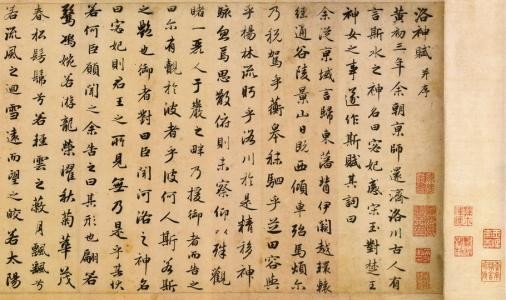 洛神賦 并序
黃初三年余朝京師還濟洛川古人有
言斯水之神名曰宓妃感宋玉對楚王
神女之事遂作斯賦其詞曰
余從京域言歸東藩背伊闕越轘轅
經通谷陵景山日既西傾車殆馬煩爾
乃稅駕乎蘅皋秣駟乎芝田容與
乎楊林流眄乎洛川於是精移神
駭忽焉思散俯則未察仰以殊觀
睹一麗人于巖之畔乃援御者而告之
曰尔有覿於彼者乎彼何人斯若斯
之豔也御者對曰臣聞河洛之神名
曰宓妃則君王之所見無乃是乎其狀
若何臣願聞之余告之曰其形也翩若
驚鴻婉若游龍榮曜秋菊華茂
春松髣髴兮若輕雲之蔽月飄飄兮
若流風之迴雪遠而望之皎若太陽